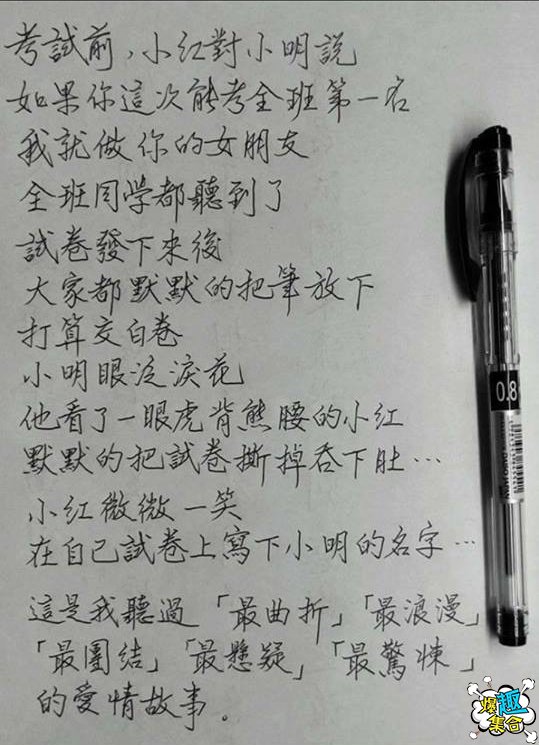 考試前，小红對小明説
如果你這次能考全班第一名
我就做你的女朋友
全班同學都聽到了
試卷發下來後
大家都默默的把筆放下
打算交白卷
小明眼泛淚花
他看了一眼虎背熊腰的小红
默默的把試卷撕掉吞下肚…
小红微微一笑
在自己試卷上寫下小明的名字…
這是我聽過「最曲折」「最浪漫」
「最團結」「最懸疑」「最驚悚」
的愛情故事。
0.8
爆趣
集合